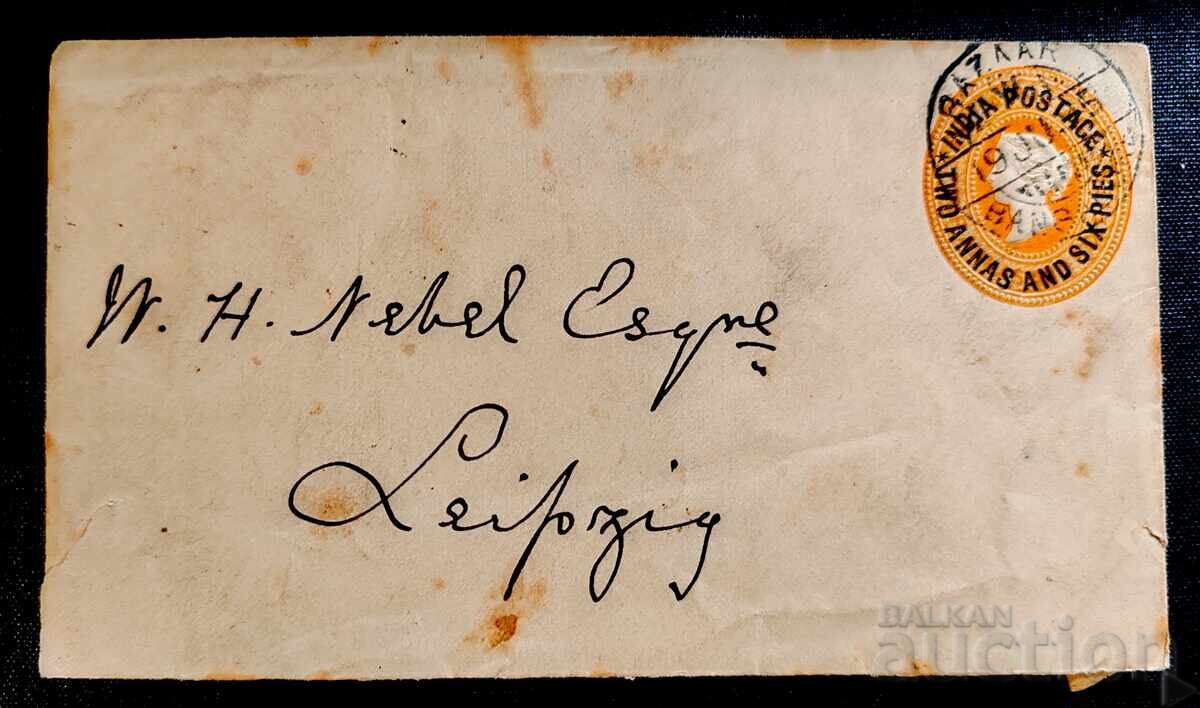 INDIA POSTAGE
TWO ANNAS AND SIX PIES
W. H. Nebel Esqre
Leipzig
BALKAN
auction